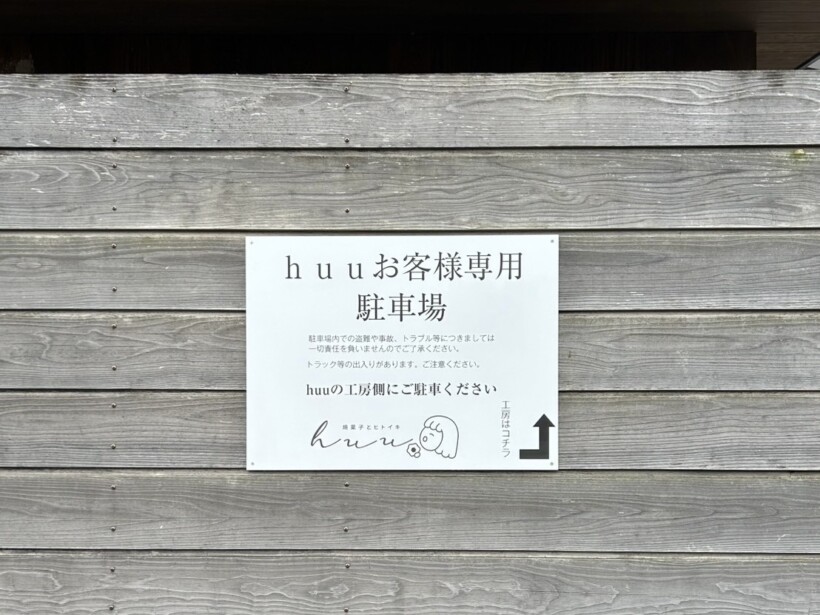 ｈｕｕお客様専用
駐車場
駐車場内での盗難や事故、トラブル等につきましては
一切責任を負いませんのでご了承ください。
トラック等の出入りがあります。ご注意ください。
huuの工房側にご駐車ください
焼菓子とヒトイキ
huu
工房はコチラ